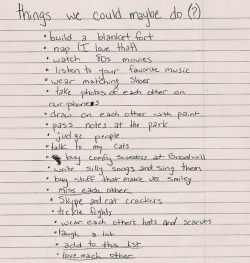 things we could maybe do (?)
• build a blanket fort
• nap (I love that)
• watch 80s movies
• listen to your favorite music
• wear matching shoes
• take photos of each other on
our phones
• draw on each other with paint
• pass notes at the park
• judge people
• talk to my cats
• buy comfy sweaters at Goodwill
• write silly songs and sing them
• buy stuff that makes us smiley
• Miss each other
• Skype and eat crackers
• tickle fights
• wear each other's hats and scarves
• laugh a lot
• add to this list
• love each other